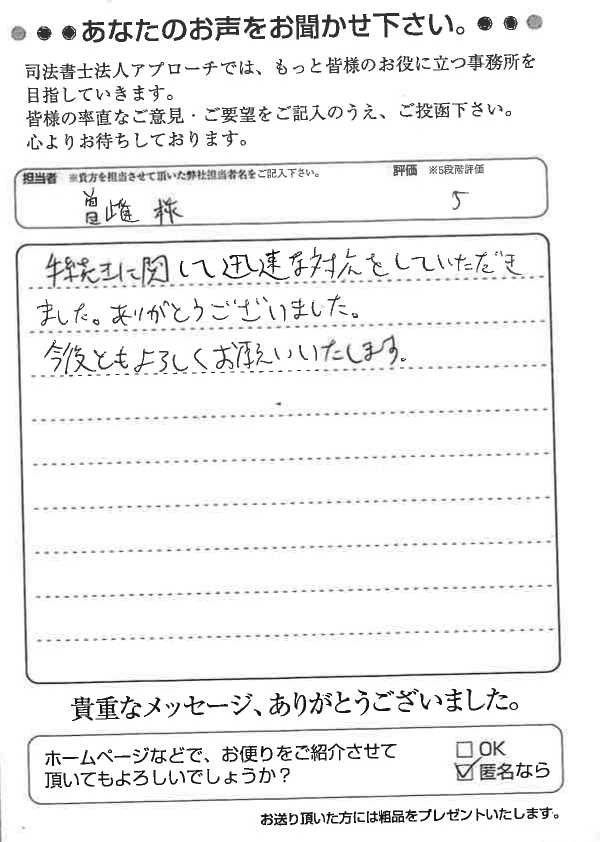 ●●●あなたのお声をお聞かせ下さい。●●●
司法書士法人アプローチでは、もっと皆様のお役に立つ事務所を
目指していきます。
皆様の率直なご意見・ご要望をご記入のうえ、ご投函下さい。
心よりお待ちしております。
担当者 ※貴方を担当させて頂いた弊社担当者名をご記入下さい。 評価 ※5段階評価
様 5
手続きに関して迅速な対応をしていただき
ました。ありがとうございました。
今後ともよろしくお願いいたします。
貴重なメッセージ、ありがとうございました。
ホームページなどで、お便りをご紹介させて
頂いてもよろしいでしょうか？
□ OK
☑ 匿名なら
お送り頂いた方には粗品をプレゼントいたします。